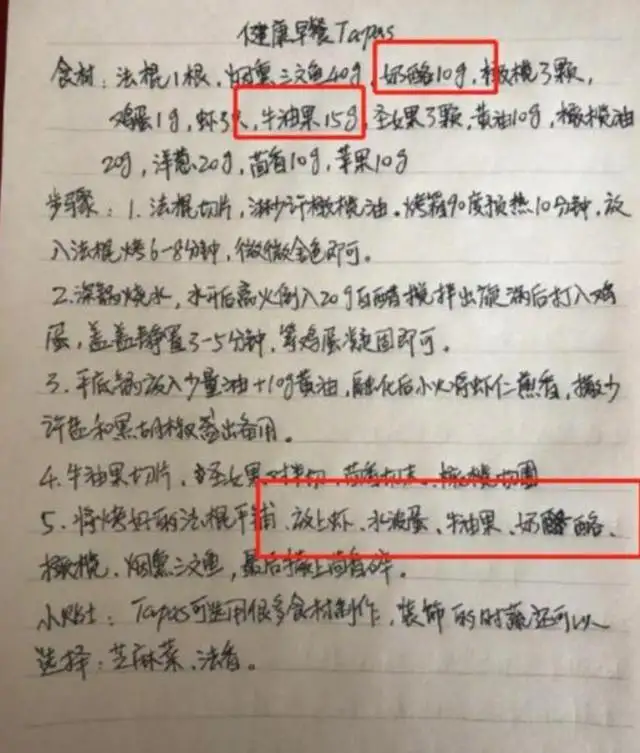 健康早餐Tapas
食材：法棍1根，烟熏三文鱼40g，奶酪10g，橄榄3颗，
鸡蛋1g，虾3人，牛油果15g，圣女果3颗，黄油10g，橄榄油
20g，洋葱20g，茴香10g，苹果10g
步骤：1. 法棍切片，淋少许橄榄油。烤箱90度预热10分钟，放
入法棍烤6-8分钟，微微金色即可。
2. 深锅烧水，水开后高火倒入20g白醋搅拌出漩涡后打入鸡
蛋，盖盖静置3-5分钟，等鸡蛋凝固即可。
3. 平底锅放入少量油+10g黄油，融化后小火将虾仁煎香，撒少
许盐和黑胡椒盛出备用。
4. 牛油果切片，圣女果对半切，茴香切末，橄榄切圈
5. 将烤好的法棍平铺，放上虾、水波蛋、牛油果、奶酪、
橄榄、烟熏三文鱼，最后撒上茴香碎。
小贴士：Tapas可选用很多食材制作，装饰的时蔬还可以
选择：芝麻菜、法香。